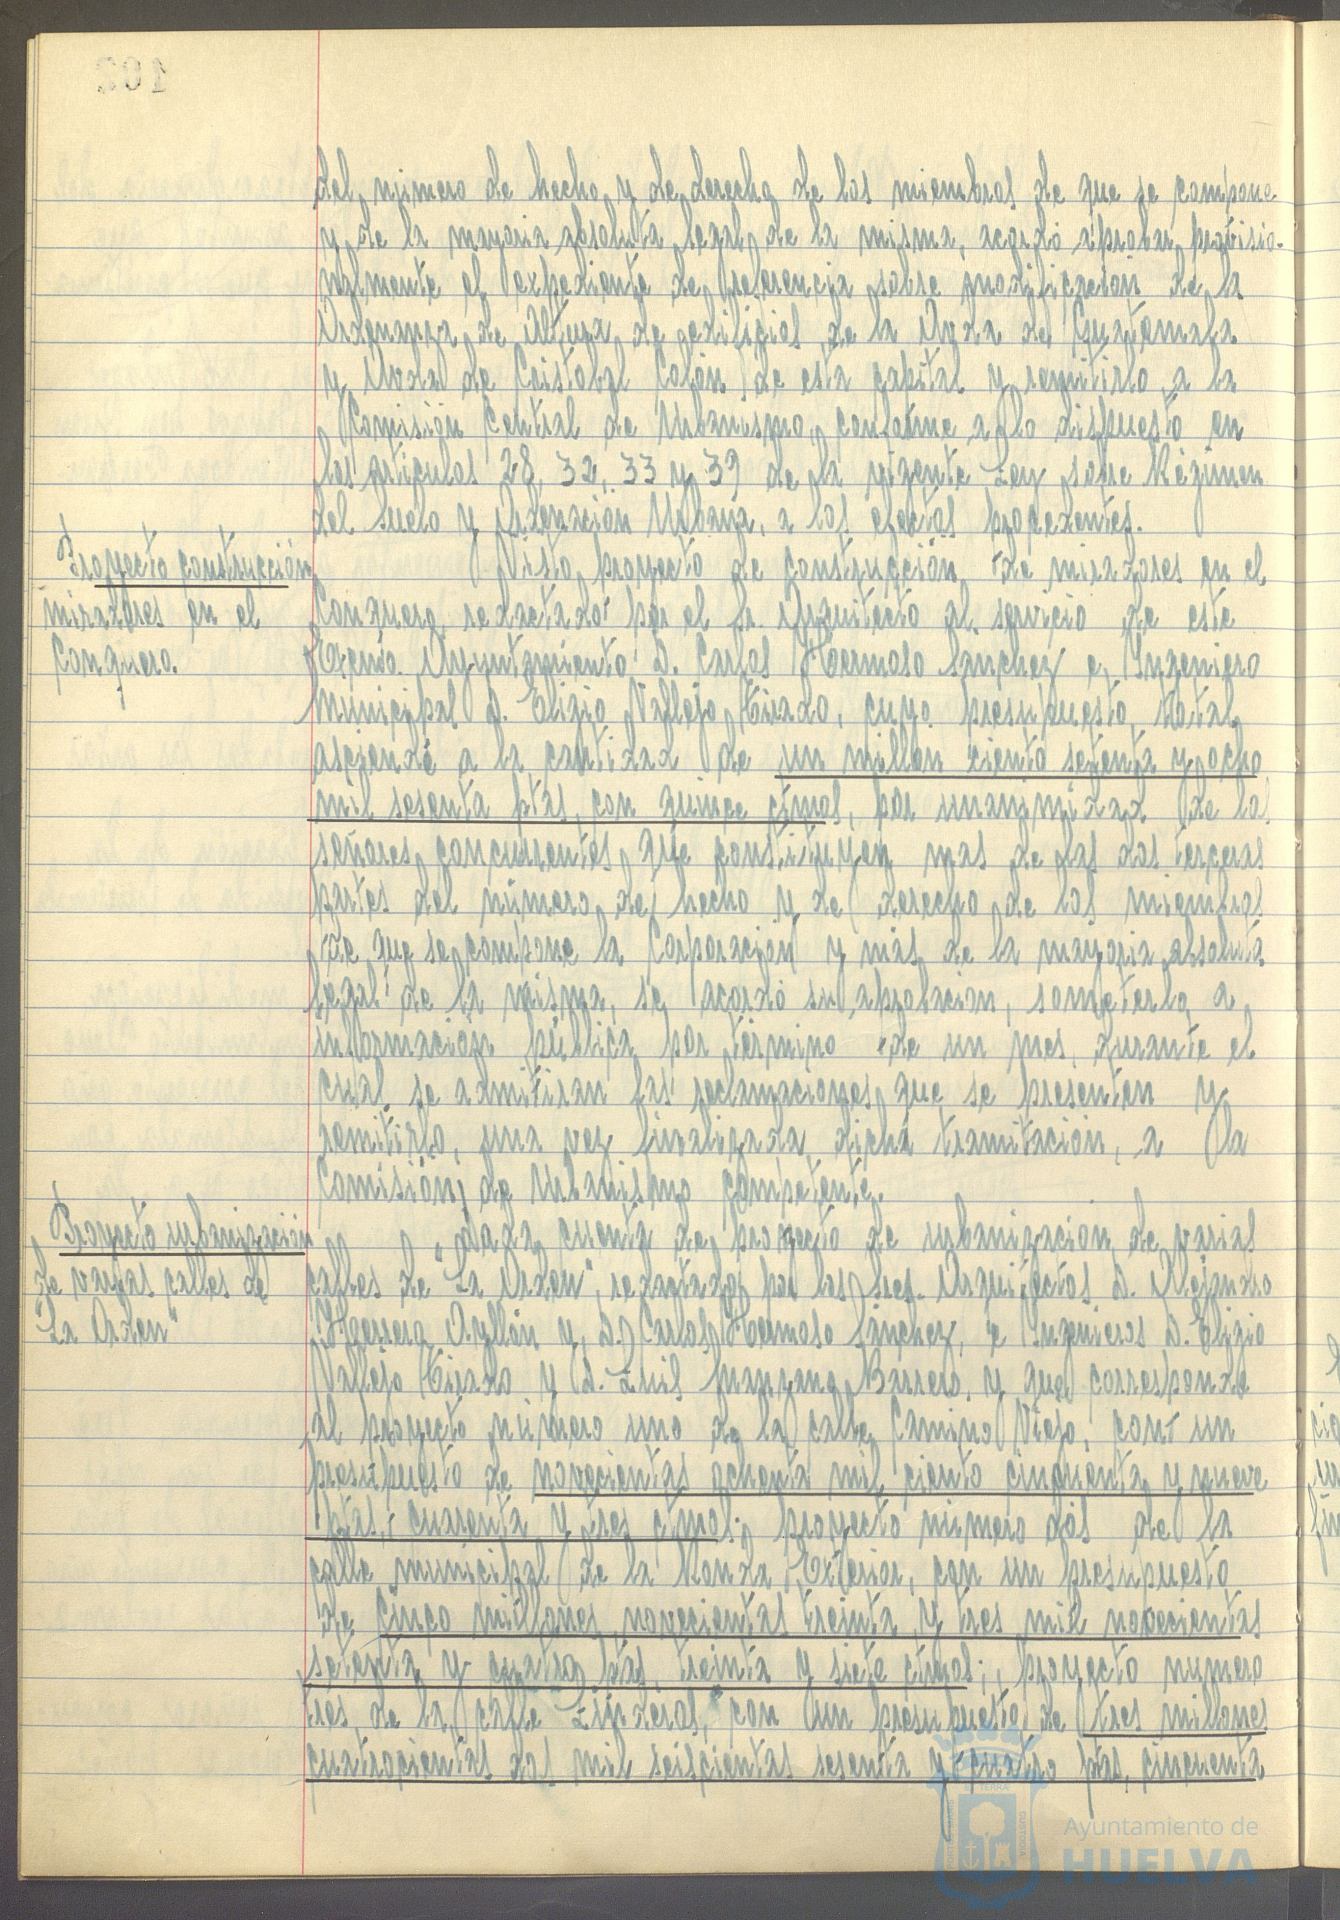 del número de hecho y de derecho de los miembros de que se compone
y de la mayoria absoluta legal de la misma, acordó aprobar provisio-
nalmente el expediente de referencia sobre modificación de la
Ordenanza de Altura de edificios de la Avda de Guatemala
y Avda de Cristobal Colón de esta capital y remitirlo a la
Comisión Central de Urbanismo, conforme a lo dispuesto en
los articulos 28, 32, 33 y 39 de la vigente Ley sobre Régimen
del Suelo y Ordenación Urbana, a los efectos procedentes.
Proyecto construcción
miradores en el
Conquero.
Visto proyecto de construcción de miradores en el
Conquero redactado por el Sr. Arquitecto al servicio de este
Excmo. Ayuntamiento D. Carlos Hermoso Sanchez e Ingeniero
Municipal D. Eligio Vallejo Tirado, cuyo presupuesto total
asciende a la cantidad de un millon ciento setenta y ocho
mil sesenta ptas, con quince ctmos, por unanimidad de los
señores concurrentes que constituyen mas de las dos terceras
partes del número de hecho y de derecho de los miembros
de que se compone la Corporación y más de la mayoria absoluta
legal de la misma, se acordó su aprobacion, someterlo a
información pública por término de un mes, durante el
cual se admitiran las reclamaciones que se presenten y
remitirlo, una vez finalizada dicha tramitación, a la
Comisión de Urbanismo competente.
Proyecto urbanización
de varias calles de
"La Orden"
Dada cuenta de proyecto de urbanizacion de varias
calles de "La Orden", redactado por los Sres. Arquitectos D. Alejandro
Herrero Ayllón y D. Carlos Hermoso Sánchez, e Ingenieros D. Eligio
Vallejo Tirado y D. Luis Manzano Barrero, y que corresponde
al proyecto número uno de la calle Camino Viejo, con un
presupuesto de novecientas ochenta mil ciento cincuenta y nueve
ptas, cuarenta y tres ctmos; proyecto número dos de la
calle municipal de la Ronda Exterior, con un presupuesto
de cinco millones novecientas treinta y tres mil novecientas
setenta y cuatro ptas, treinta y siete ctmos; proyecto numero
tres de la calle Linderos, con un presupuesto de tres millones
cuatrocientas dos mil seiscientas sesenta y cuatro ptas, cincuenta
Ayuntamiento de
HUELVA